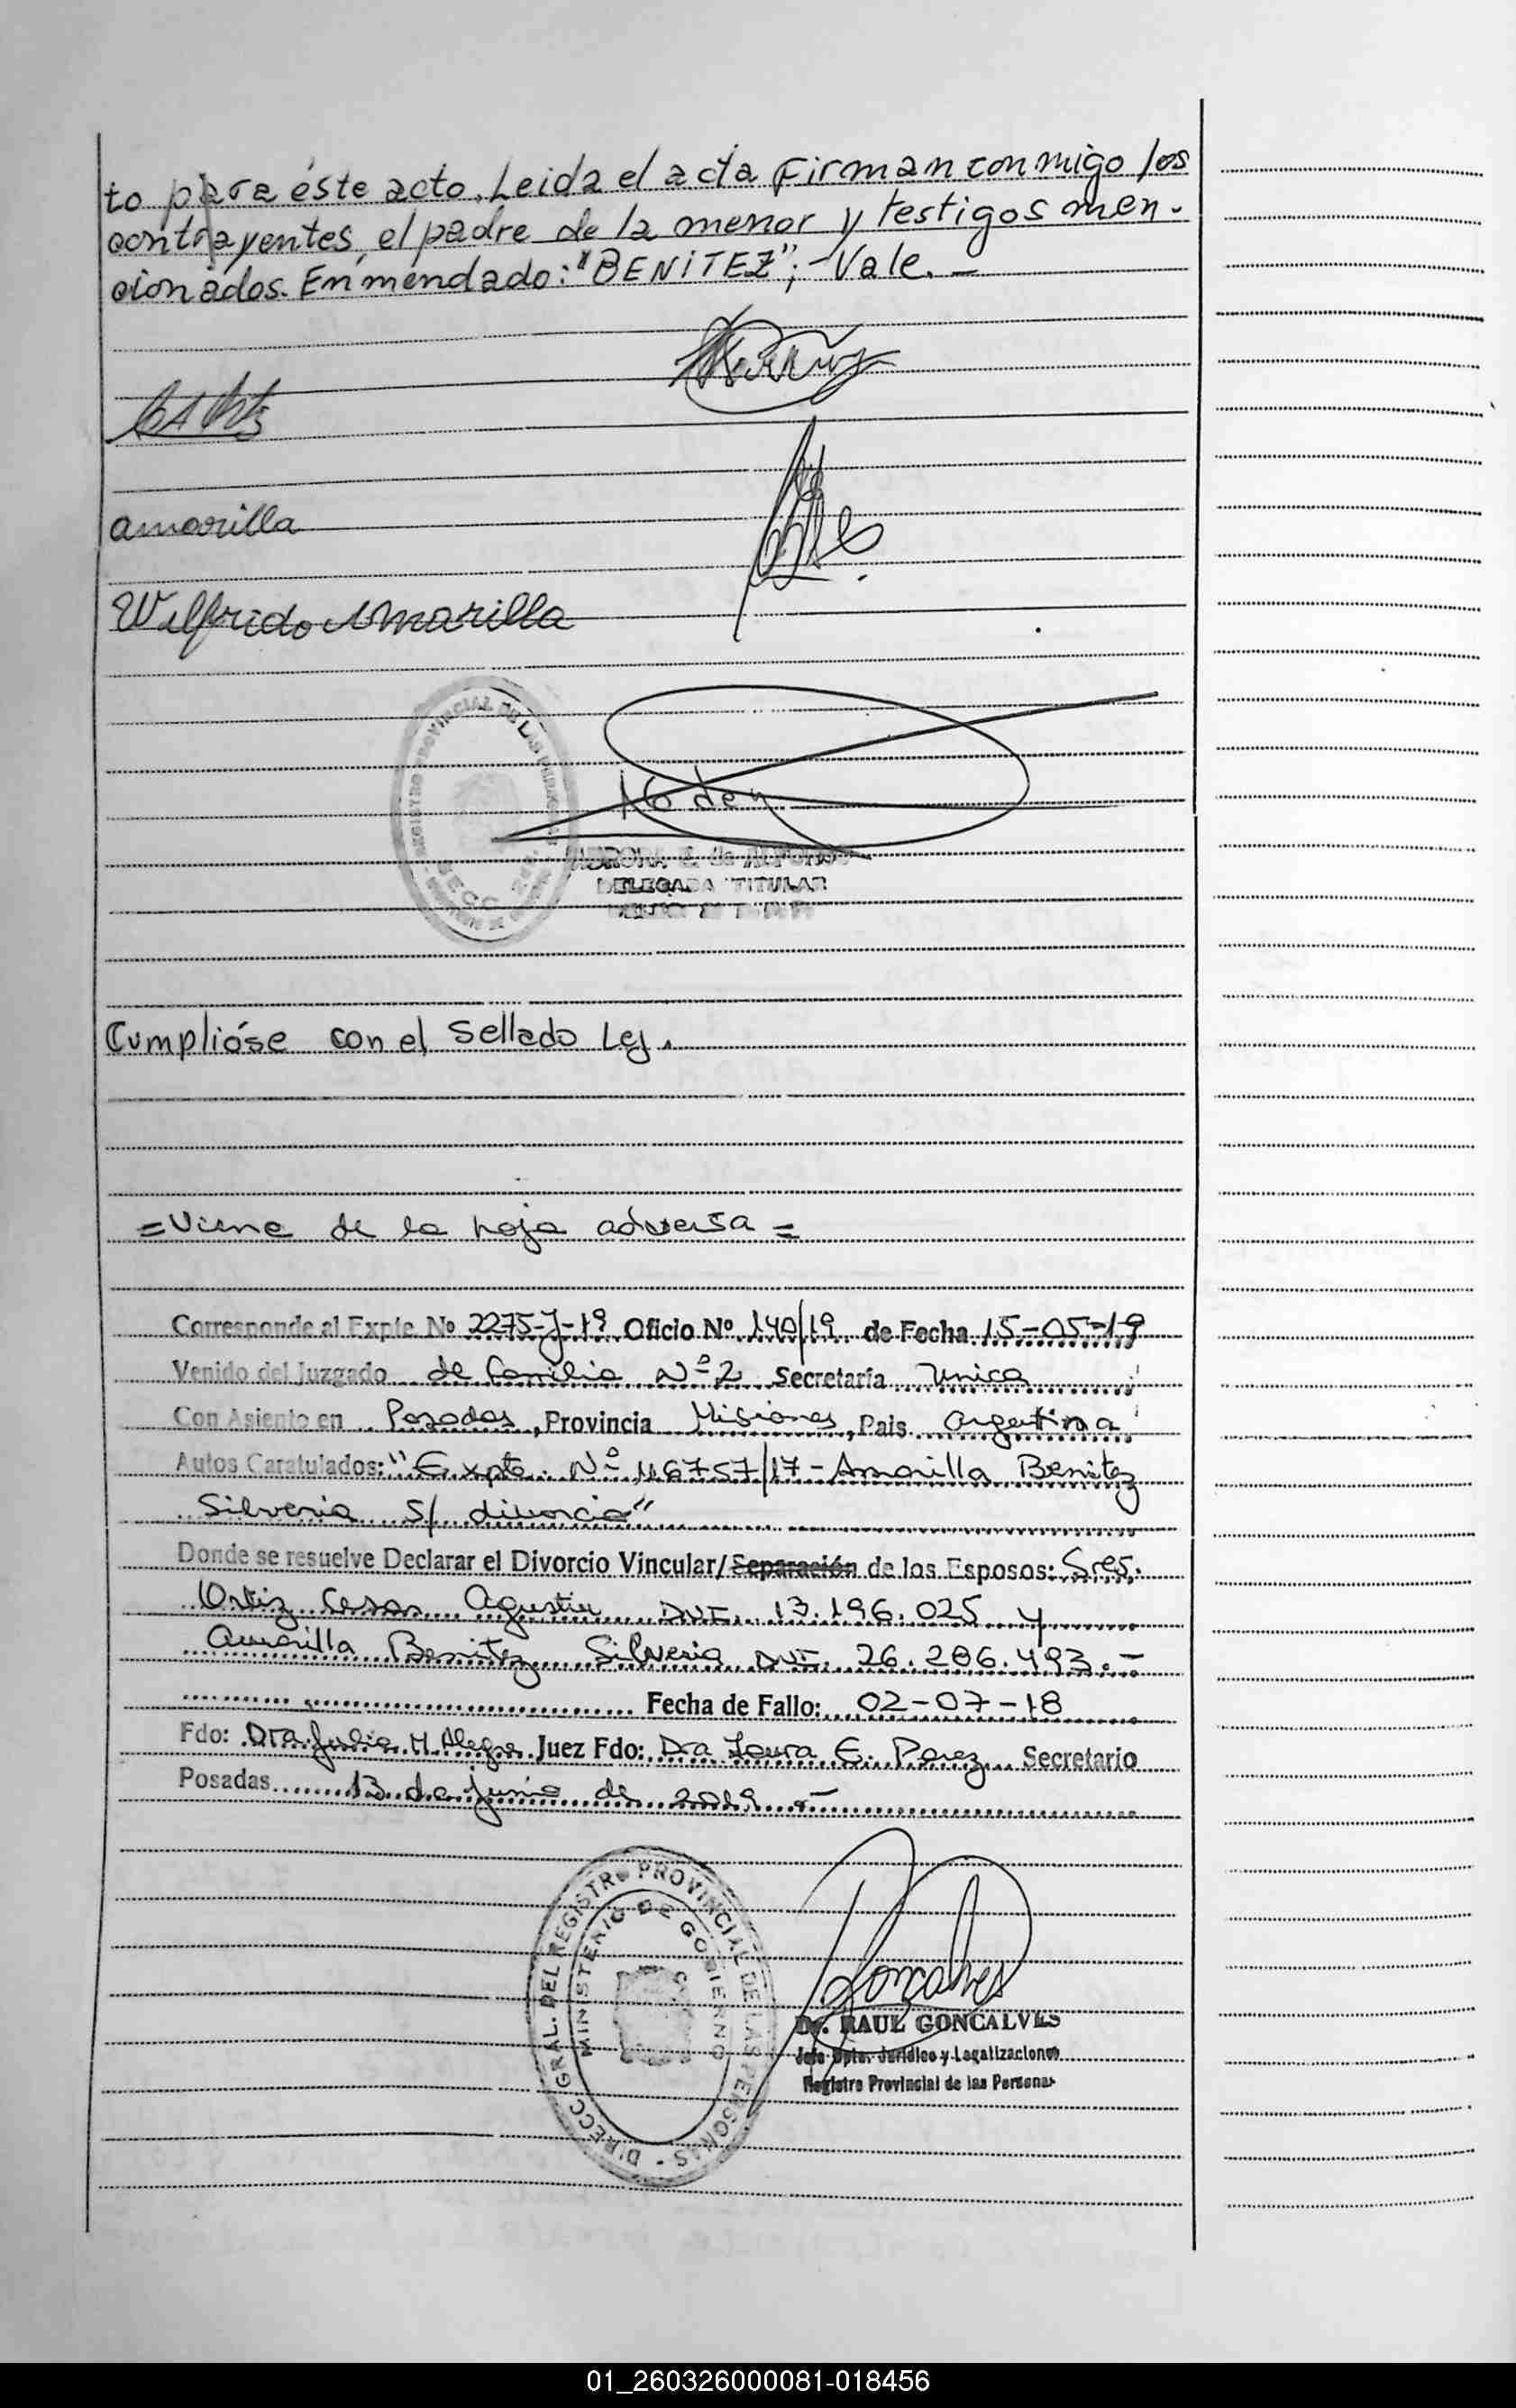 to para éste acto. Leida el acta firman conmigo los
contrayentes, el padre de la menor y testigos men-
cionados. Enmendado: "BENITEZ"; -Vale. -
amarilla
Wilfrido Amarilla
REGISTRO PROVINCIAL DE LAS PERSONAS
AURORA
DELEGADA TITULAR
Cumplióse con el Sellado Ley.
= Viene de la hoja adversa =
Corresponde al Expte. No 2275-J-19 Oficio No 140/19 de Fecha 15-05-19
Venido del Juzgado de Familia Nº 2 Secretaría Unica
Con Asiento en Posadas, Provincia Misiones, Pais Argentina
Autos Caratulados: "Expte. Nº 46757/17 - Amarilla Benitez
Silveria S/ divorcio"
Donde se resuelve Declarar el Divorcio Vincular/Separación de los Esposos: Sres.
Ortiz Cesar Agustin DNI. 13.196.025 y
Amarilla Benitez Silveria DNI. 26.286.493.-
Fecha de Fallo: 02-07-18
Fdo: Dra. Julia H. Alegre Juez Fdo: Dra Laura E. Perez Secretario
Posadas 13 de junio de 2019.-
DIRECC. GRAL. DEL REGISTRO PROVINCIAL DE LAS PERSONAS -
MINISTERIO DE GOBIERNO
Goncalves
Dr. RAUL GONCALVES
Jefe Dpto. Jurídico y Legalizaciones
Registro Provincial de las Personas
01_260326000081-018456